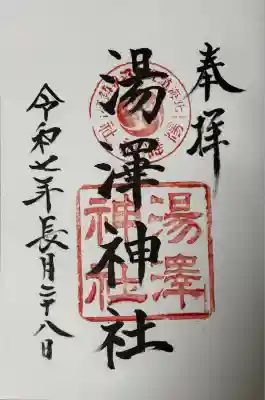 奉拝
湯澤神社
湯澤
神社
令和七年長月二十八日